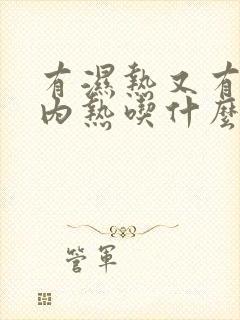 有濕熱又有
內熱喫什麼
管軍